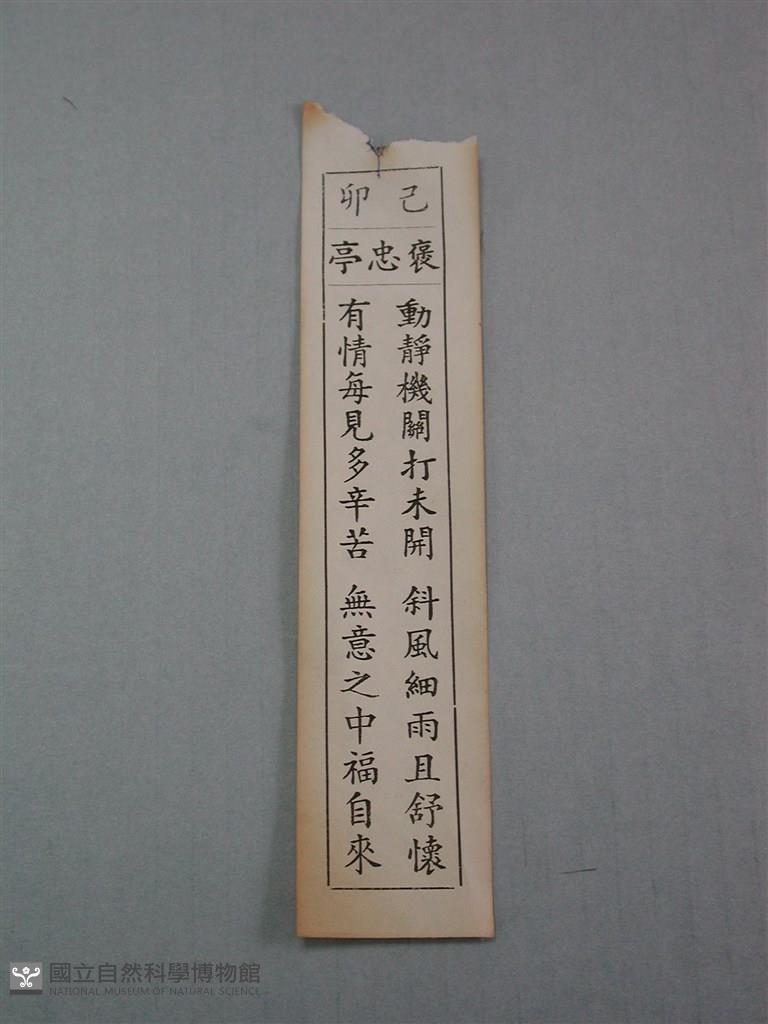 己卯
褒忠亭
動靜機關打未開 斜風細雨且舒懷
有情每見多辛苦 無意之中福自來
國立自然科學博物館
NATIONAL MUSEUM OF NATURAL SCIENCE